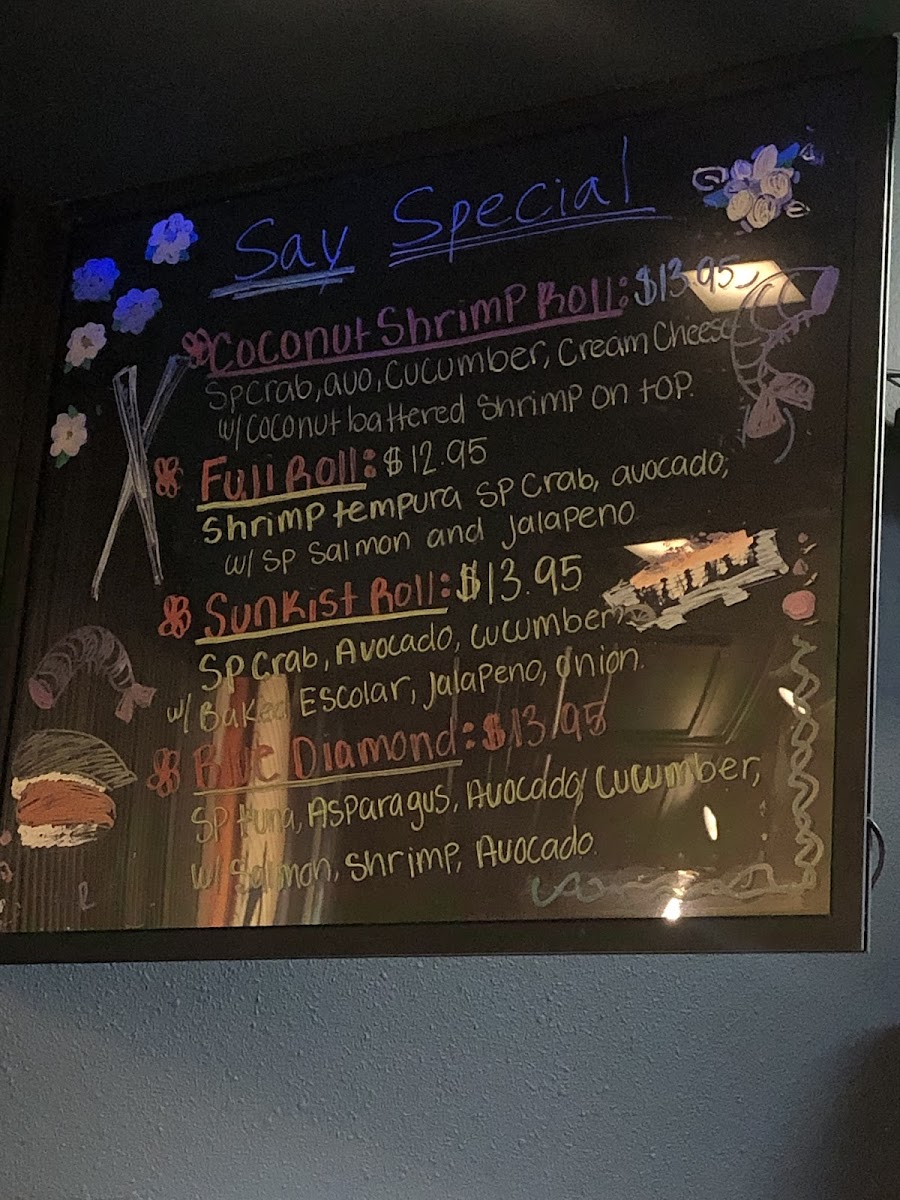 Say Special
Coconut Shrimp Roll: $13.95
Sp Crab, avo, Cucumber, Cream Cheese
w/ Coconut battered Shrimp on top.
Fuji Roll: $12.95
Shrimp tempura Sp Crab, avocado,
w/ Sp Salmon and Jalapeno
Sunkist Roll: $13.95
Sp Crab, Avocado, Cucumber,
w/ Baked Escolar, Jalapeno, Onion.
Blue Diamond: $13.95
Sp tuna, Asparagus, Avocado, Cucumber,
w/ Salmon, Shrimp, Avocado